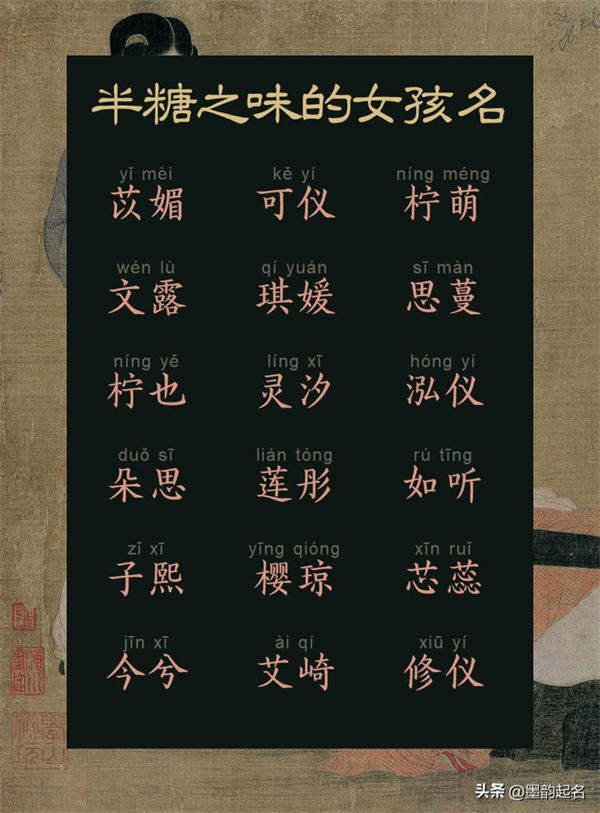 半糖之味的女孩名
yǐ mèi kě yí níng méng
苡媚 可仪 柠萌
wén lù qí yuán sī màn
文露 琪媛 思蔓
níng yě líng xī hóng yí
柠也 灵汐 泓仪
duǒ sī lián tóng rú tīng
朵思 莲彤 如听
zǐ xī yīng qióng xīn ruǐ
子熙 樱琼 芯蕊
jīn xī ài qí xiū yí
今兮 艾崎 修仪
头条 @墨韵起名